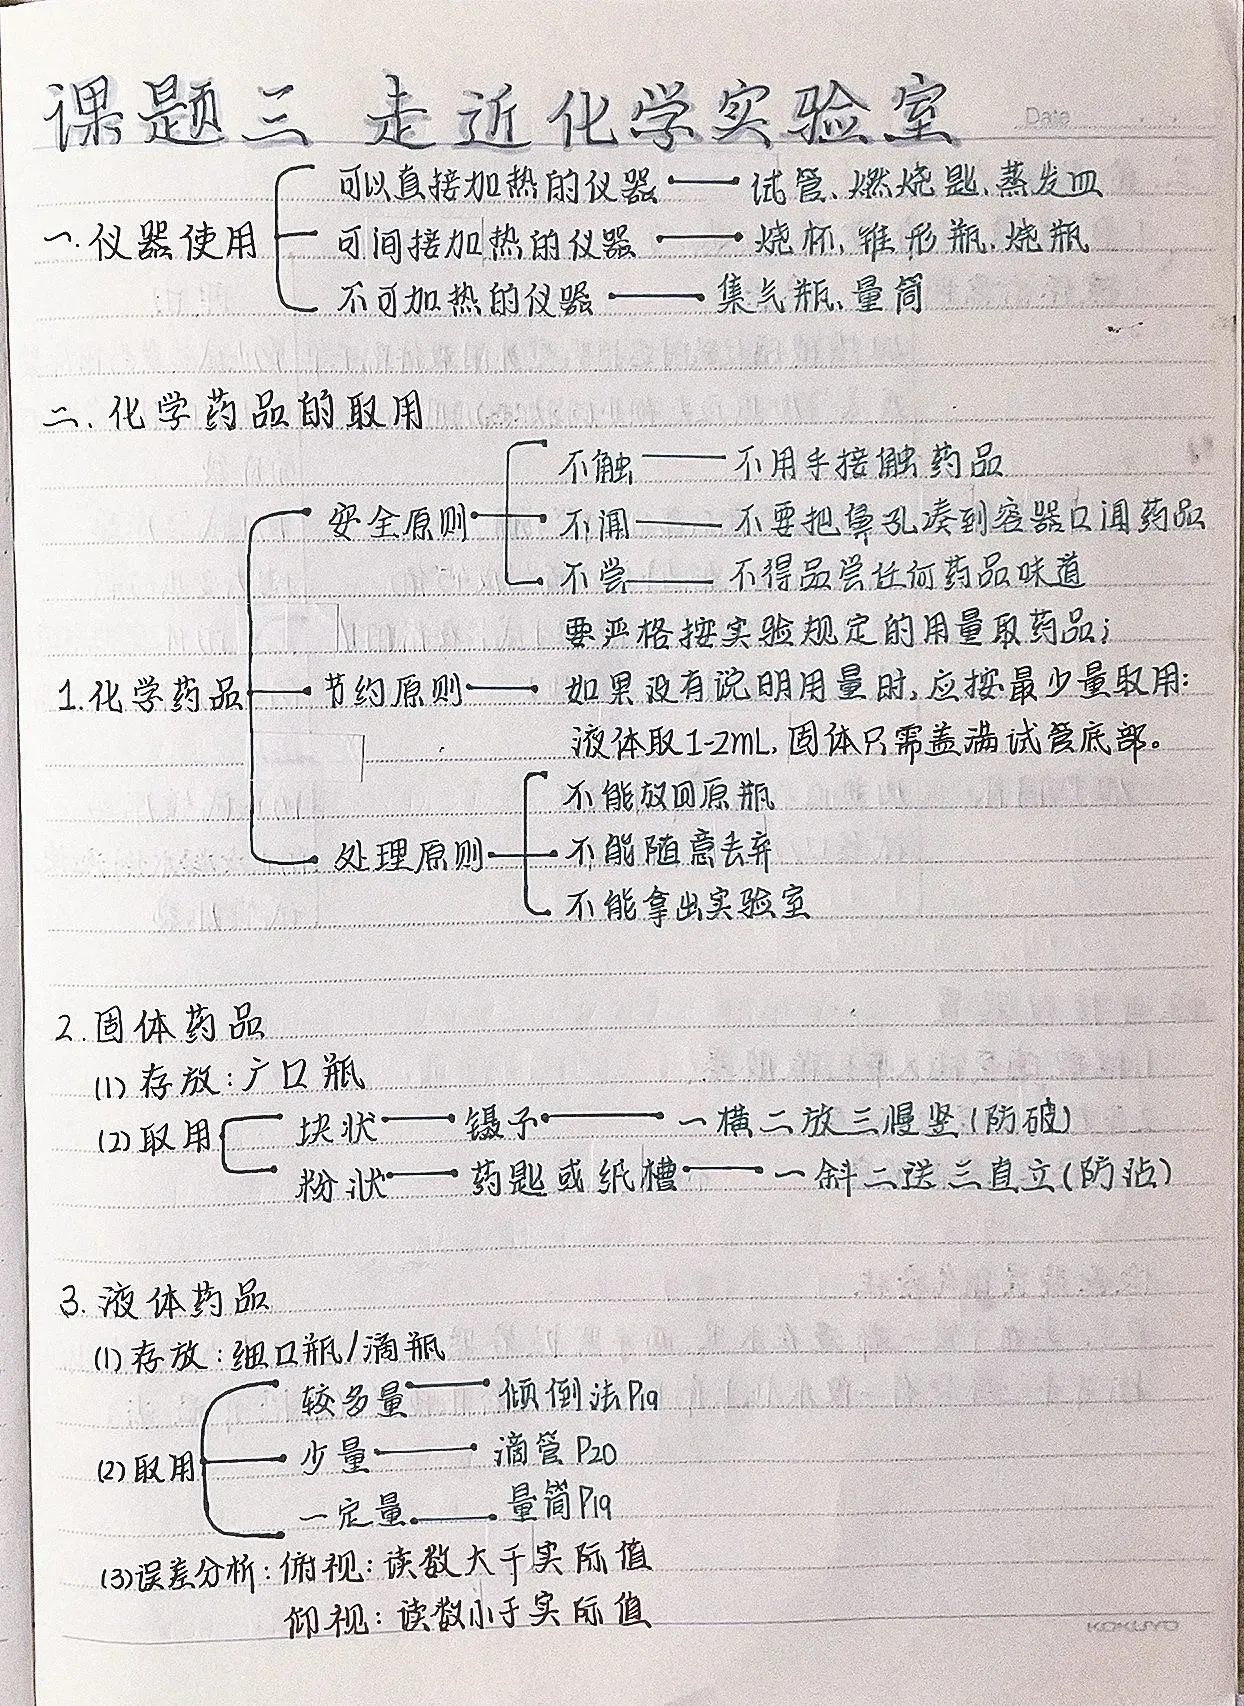 课题三 走近化学实验室
Date
可以直接加热的仪器——试管、燃烧匙、蒸发皿
一.仪器使用 可间接加热的仪器——烧杯、锥形瓶、烧瓶
不可加热的仪器——集气瓶、量筒
二.化学药品的取用
不触——不用手接触药品
安全原则 不闻——不要把鼻孔凑到容器口闻药品
不尝——不得品尝任何药品味道
要严格按实验规定的用量取药品;
1.化学药品 节约原则——如果没有说明用量时,应按最少量取用:
液体取1-2mL,固体只需盖满试管底部。
不能放回原瓶
处理原则 不能随意丢弃
不能拿出实验室
2.固体药品
(1)存放:广口瓶
(2)取用 块状——镊子——一横二放三慢竖(防破)
粉状——药匙或纸槽——一斜二送三直立(防沾)
3.液体药品
(1)存放:细口瓶/滴瓶
较多量——倾倒法P19
(2)取用 少量——滴管P20
一定量——量筒P19
(3)误差分析:俯视:读数大于实际值
仰视:读数小于实际值
KOKUYO